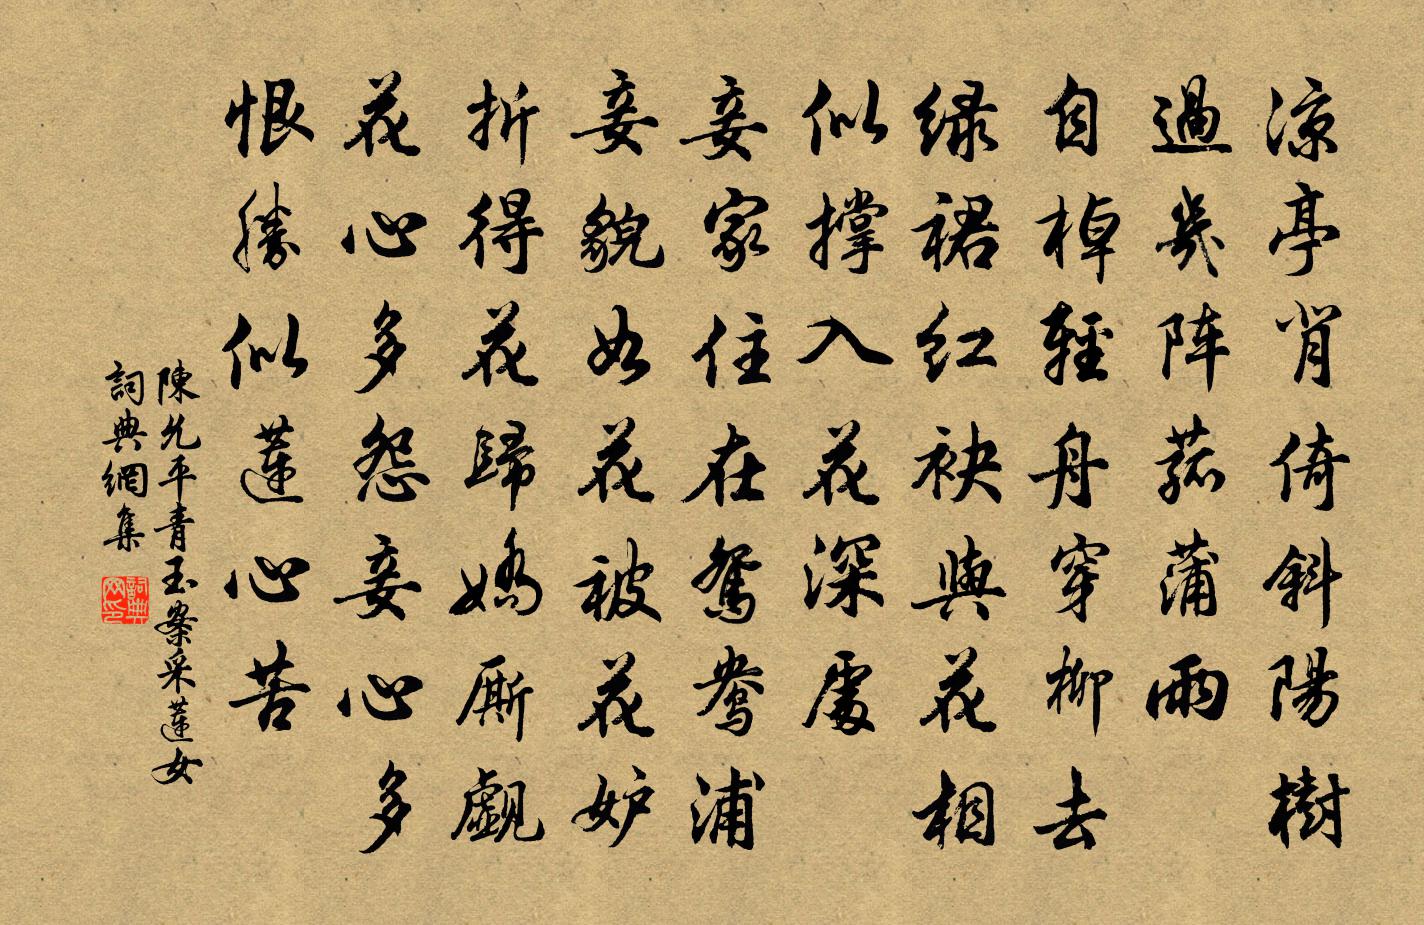 涼亭背倚斜陽樹
過幾阵菰蒲雨
自棹輕舟穿柳去
绿裙红袂與花相
似撑入花深處
妾家住在鴛鴦浦
妾貌如花被花妒
折得花歸嬌厮覷
花心多怨妾心多
恨勝似蓮心苦
陳允平青玉案采蓮女
詞典網集